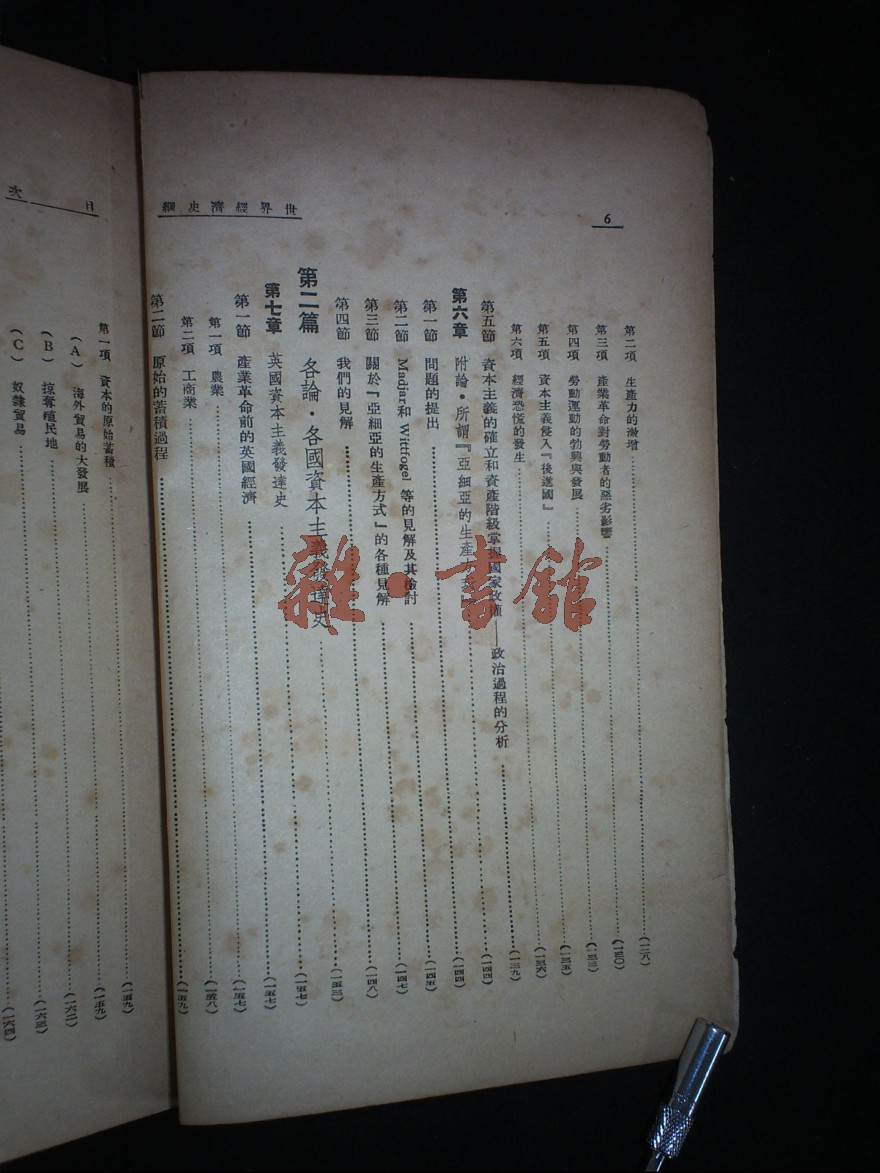 6
世界經濟史綱
第二項 生產力的激增 (一二八)
第三項 產業革命對勞動者的惡劣影響 (一三〇)
第四項 勞動運動的勃興與發展 (一三三)
第五項 資本主義侵入『後進國』 (一三五)
第六項 經濟恐慌的發生 (一三六)
第五節 資本主義的確立和資產階級掌握國家政權——政治過程的分析 (一三九)
第六章 附論・所謂『亞細亞的生產方式』 (一四四)
第一節 問題的提出 (一四四)
第二節 Madjar和 Wittfogel 等的見解及其檢討 (一四五)
第三節 關於『亞細亞的生產方式』的各種見解 (一四七)
第四節 我們的見解 (一四八)
第二篇 各論・各國資本主義發達史 (一五三)
第七章 英國資本主義發達史 (一五七)
第一節 產業革命前的英國經濟 (一五七)
第一項 農業 (一五七)
第二項 工商業 (一五八)
第二節 原始的蓄積過程 (一五九)
目次
第一項 資本的原始蓄積 (一五九)
(A) 海外貿易的大發展 (一五九)
(B) 掠奪殖民地 (一六二)
(C) 奴隸貿易 (一六三)
(一六四)
雜・書館